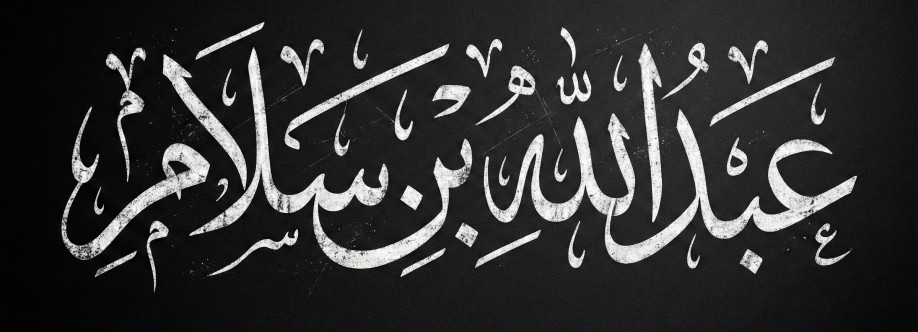 عَبْدُ اللّٰهِ بْنِ سَلَامٍ